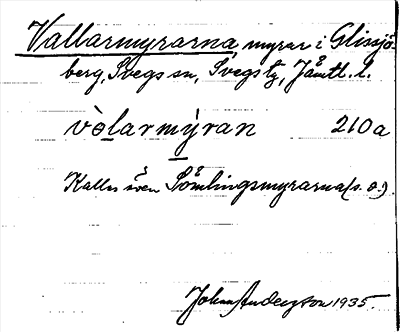 Vallarmyrarna, myrar i Glissjö-
berg, Svegs sn, Svegs tg, Jämtl. l.
vòlarmýran 210a
Kallas även Sömlingsmyrarna (s. o.).
John Anderzon 1935.